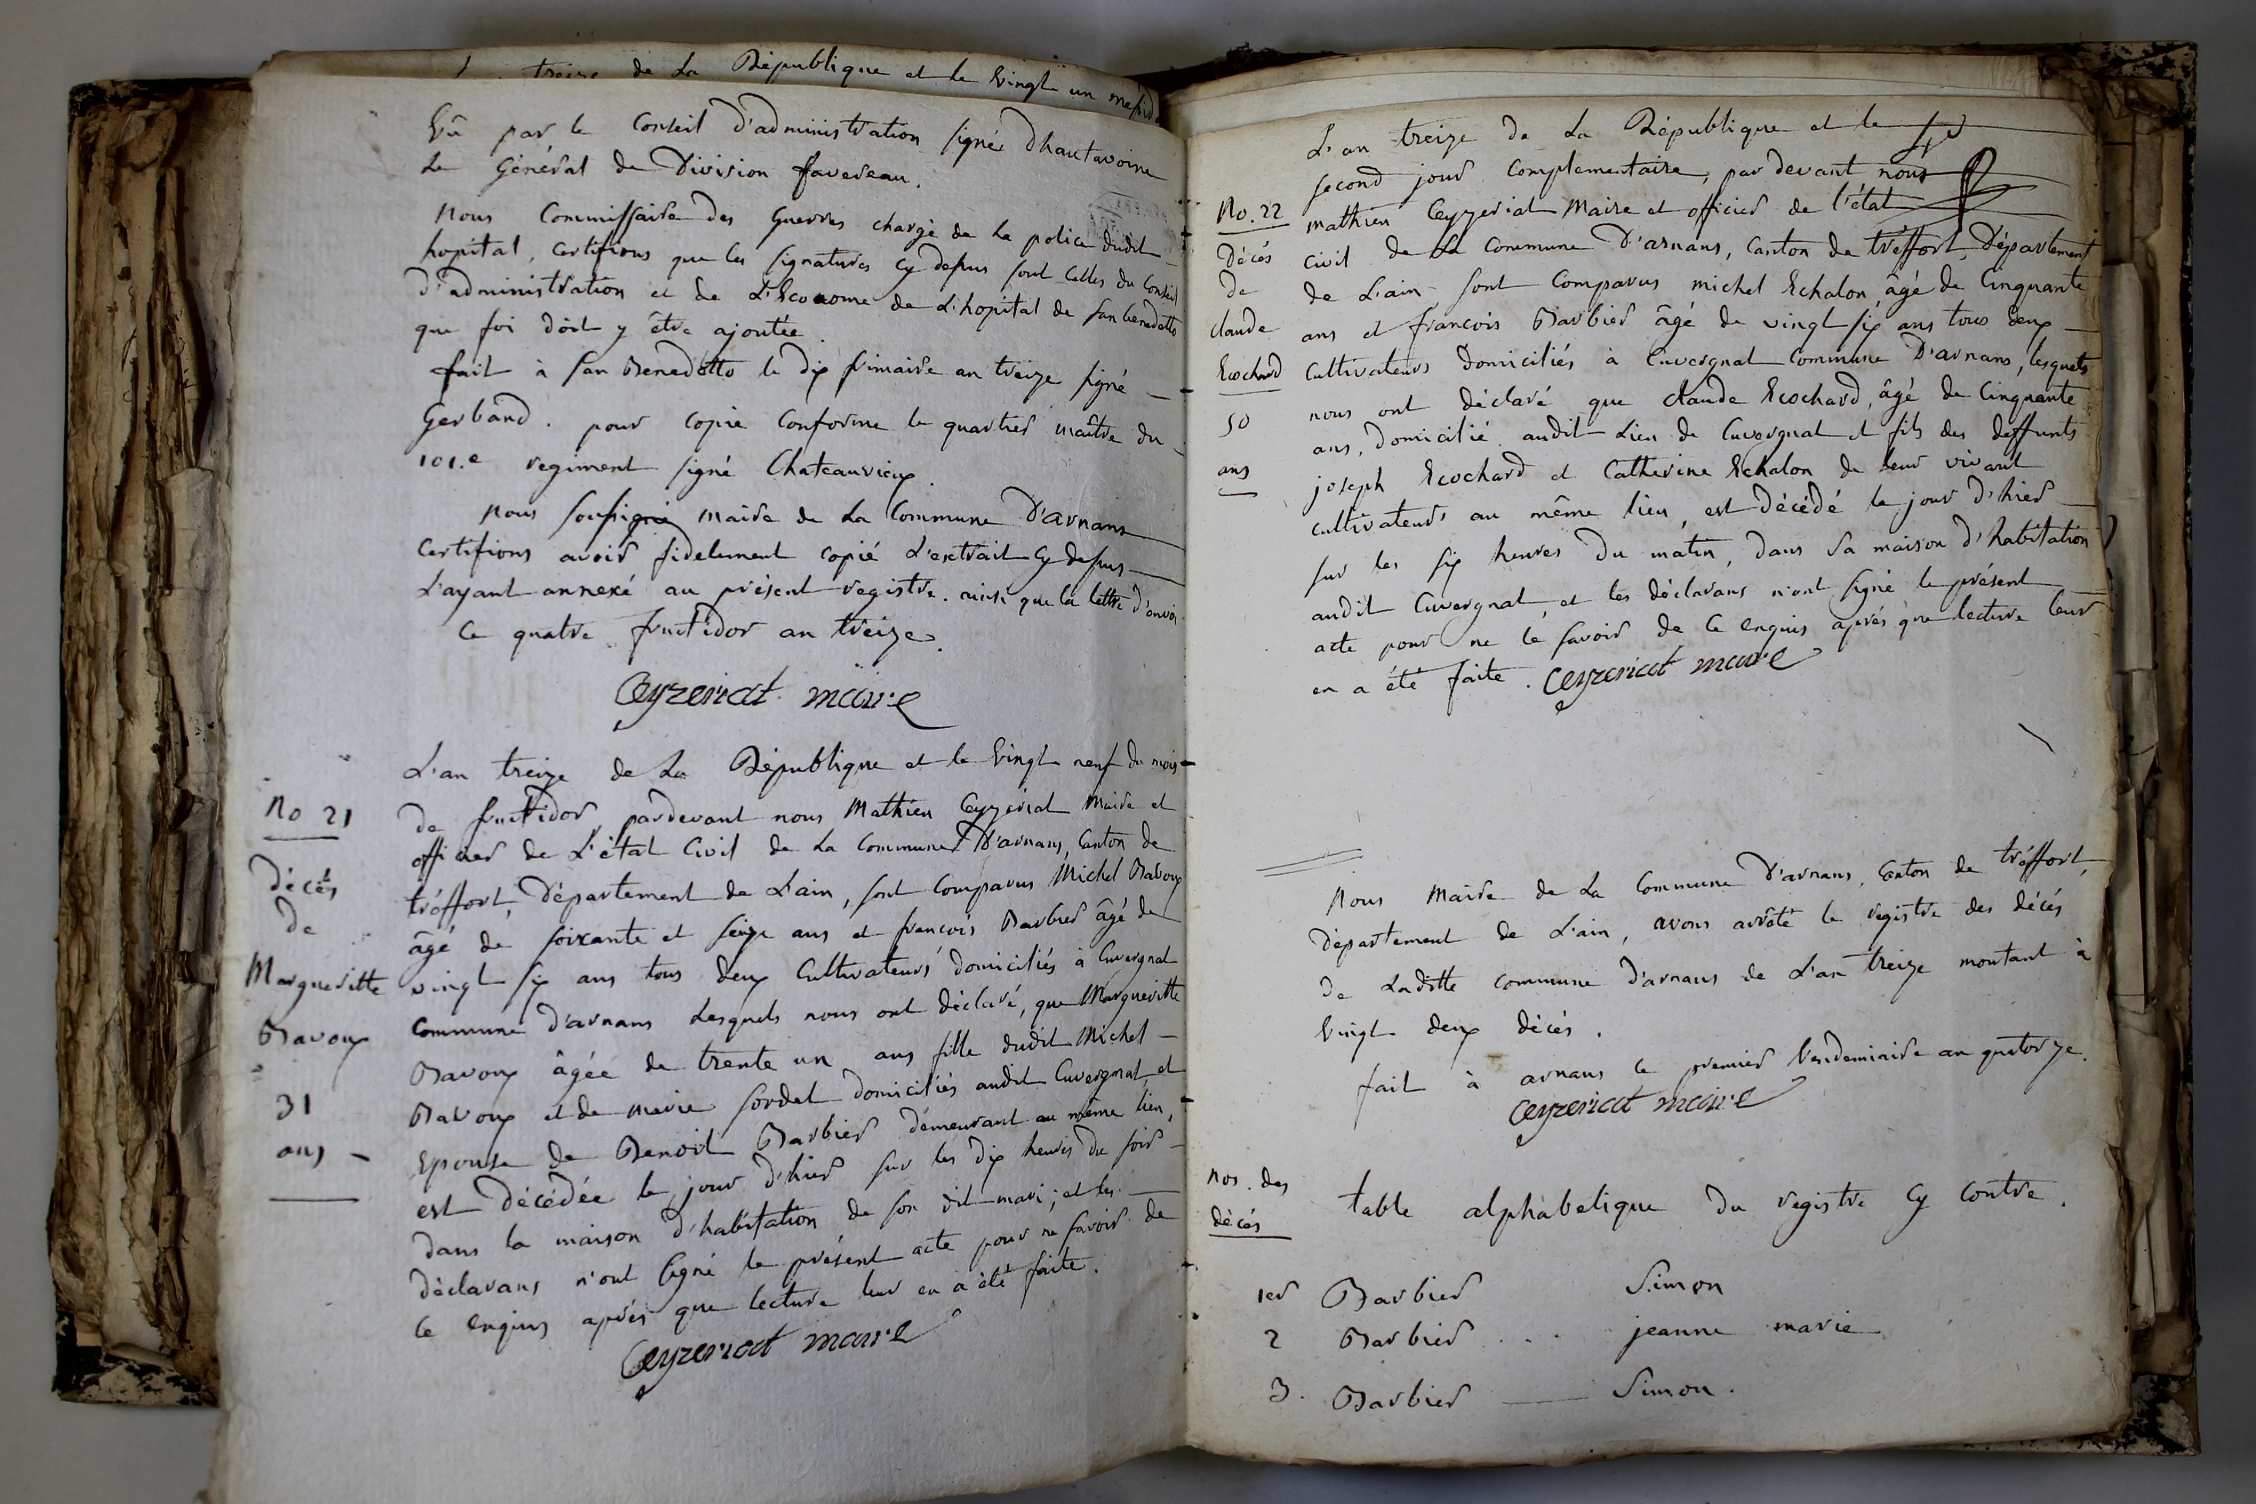 treize de La République et le Vingt un
Vû par le Conseil D'administration signé Dhautavoine
Le Général de Division faverau.
Nous Commissaire Des Guerres chargé de La police dudit
hopital, Certifions que les signatures cy dessus sont celles du Conseil
D'administration et de L'Econome de L'hopital de San benedetto
que foi doit y être ajoutée.
fait à San Benedetto le dix frimaire an treize signé
Gerband. pour copie conforme le quartier maitre du
101.e regiment signé Chateauvieux.
Nous soussigné maire de La Commune D'arnans
Certifions avoir fidelement copié L'extrait cy dessus
L'ayant annexé au présent registre. ainsi que la lettre d'envoi
Ce quatre fructidor an treize.
Ceyzeriat maire
L'an treize de La République et le Vingt neuf du mois
No 21
de fructidor, pardevant nous Mathieu Ceyzeriat Maire et
officier de L'état Civil de La Commune D'arnans, Canton de
Décès
tréffort, Département de L'ain, sont Comparus Michel Bavoux
de
âgé de soixante et seize ans et françois Barbier âgé de
Marguerite
vingt six ans tous deux Cultivateurs domiciliés à Cuvergnat
Bavoux
Commune d'arnans Lesquels nous ont déclaré, que Marguerite
Bavoux âgée de trente un ans fille dudit Michel
31
Bavoux et de marie sordet domiciliés audit Cuvergnat, et
ans
Epouse de Benoit Barbier démeurant au même lieu,
est Décédée le jour d'hier sur les dix heures du soir
Dans la maison d'habitation de son dit mari; et les
Déclarans n'ont signé le présent acte pour ne savoir de
ce enquis après que lecture leur en a été faite.
Ceyzeriat maire
L'an treize de La République et le
second jour Complementaire, par devant nous
No. 22
mathieu Ceyzeriat Maire et officier de l'état
Décés
Civil de La Commune D'arnans, Canton de tréffort, Département
de
de L'ain sont Comparus michel Echalon, âgé de Cinquante
claude
ans et françois Barbier âgé de vingt six ans tous deux
Ecochard
Cultivateurs Domiciliés à Cuvergnat Commune D'arnans, lesquels
50
nous ont déclaré que claude Ecochard, âgé de Cinquante
ans, Domicilié audit Lieu de Cuvergnat et fils des deffunts
ans
joseph Ecochard et Catherine Echalon de leur vivant
cultivateurs au même lieu, est Décédé le jour d'hier
sur les six heures Du matin, Dans sa maison d'habitation
audit Cuvergnat, et les déclarans n'ont signé le présent
acte pour ne le savoir de Ce enquis aprés que lecture leur
en a été faite. Ceyzeriat maire
Nous Maire de La Commune D'arnans, Canton de tréffort,
Département de L'ain, avons arrêté le registre des décés
de Laditte commune d'arnans de L'an treize montant à
Vingt deux décés.
fait à arnans le premier Vendemiaire an quatorze.
Ceyzeriat maire
Nos. des
décés
table alphabetique Du registre cy contre.
1er Barbier Simon
2 Barbier . . . jeanne marie
3. Barbier Simon.